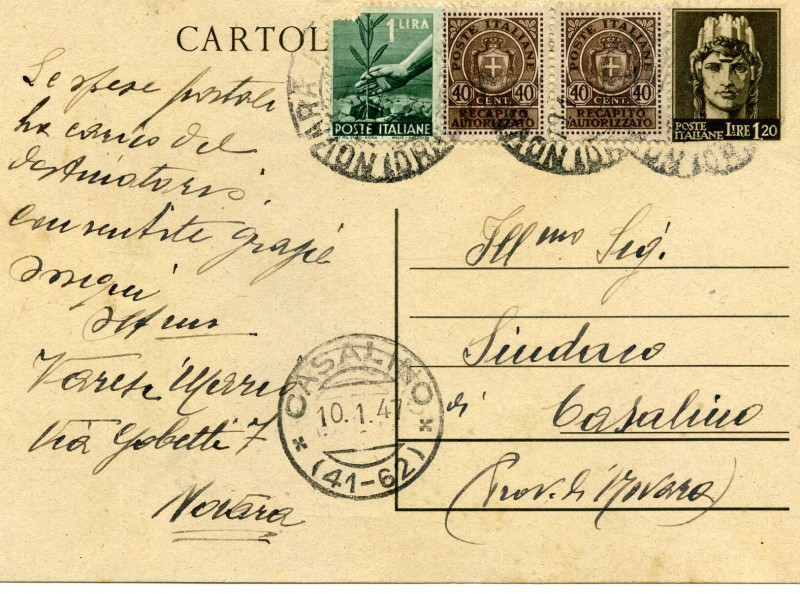 CARTOL
1 LIRA
POSTE ITALIANE
POSTE ITALIANE
40 40
CENT.
RECAPITO
AUTORIZZATO
POSTE ITALIANE
40 40
CENT.
RECAPITO
AUTORIZZATO
POSTE
ITALIANE LIRE 1,20
Le spese postali
ha carico del
destinatario,
consentite grazie
ossequi
Varese Mario
Via Gobetti 7
Novara
CASALINO
10.1.47
(41-62)
Ill.mo Sig.
Sindaco
di Casalino
(Prov. di Novara)